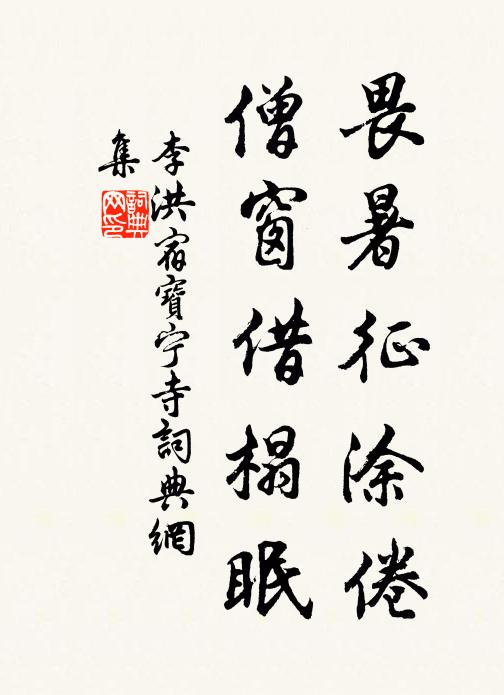 畏暑征涂倦
僧窗借榻眠
李洪宿寶宁寺詞典網
集
詞典
网印